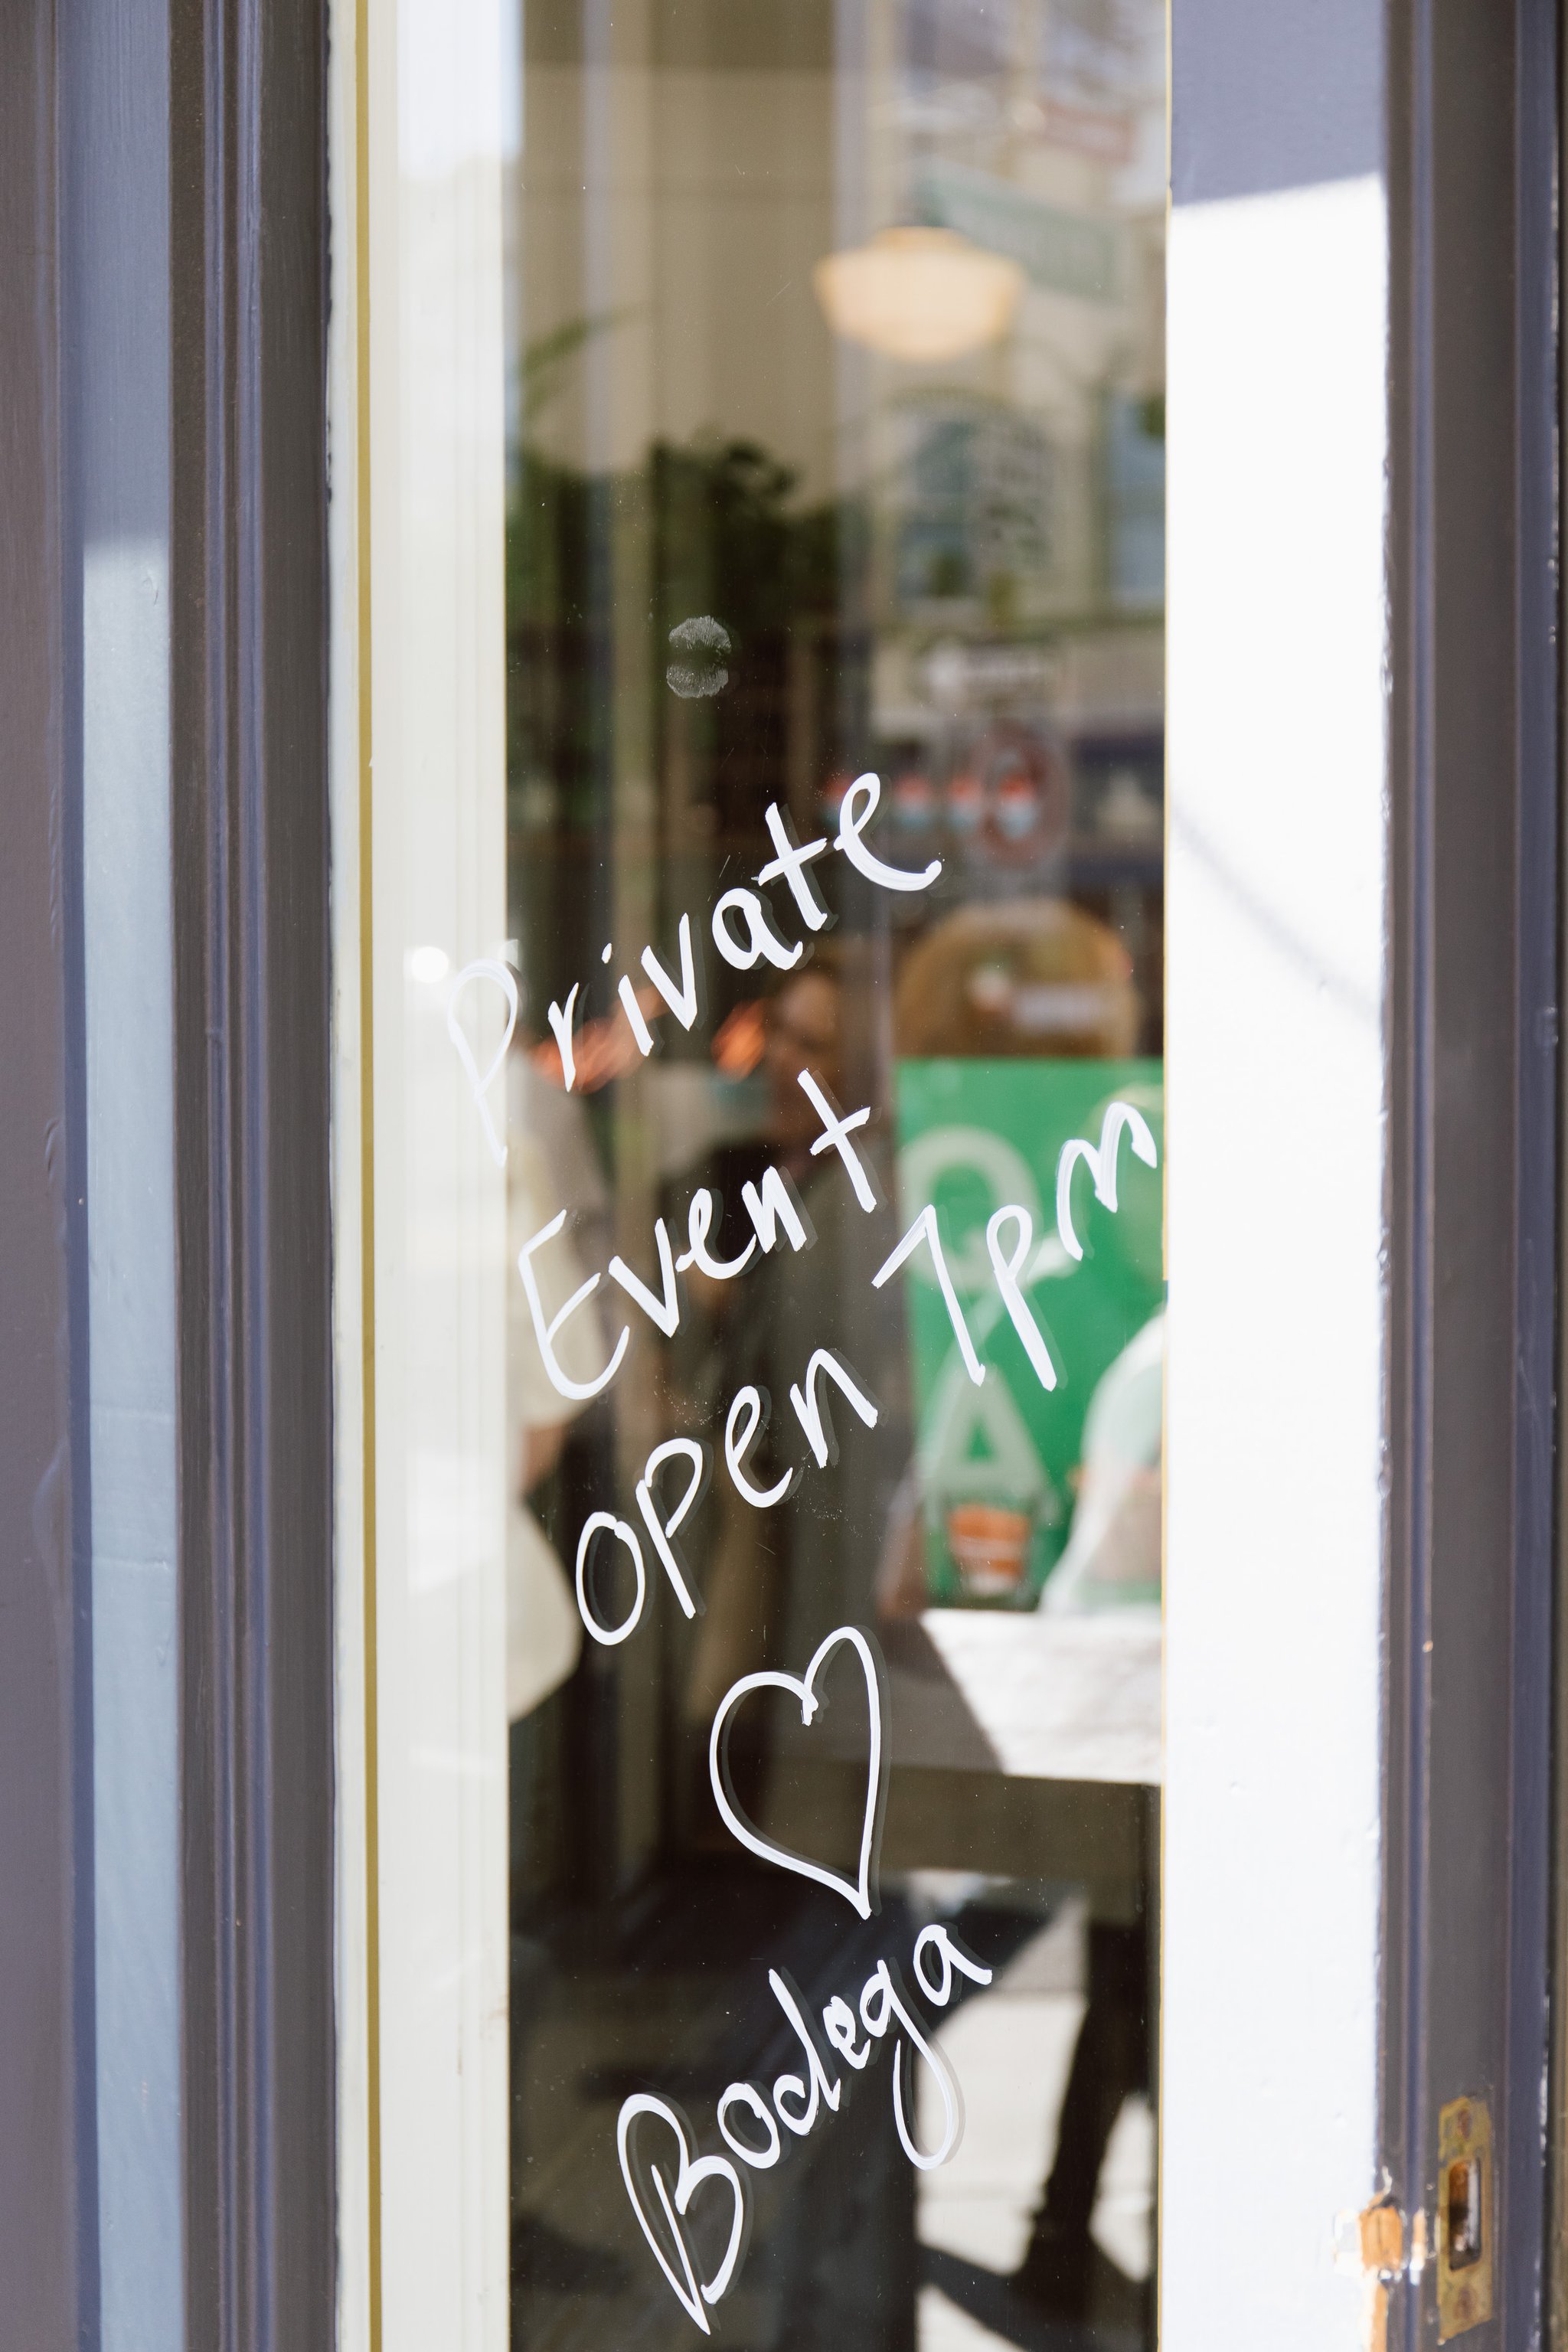 Private
Event
open 7pm
♡
Bodega